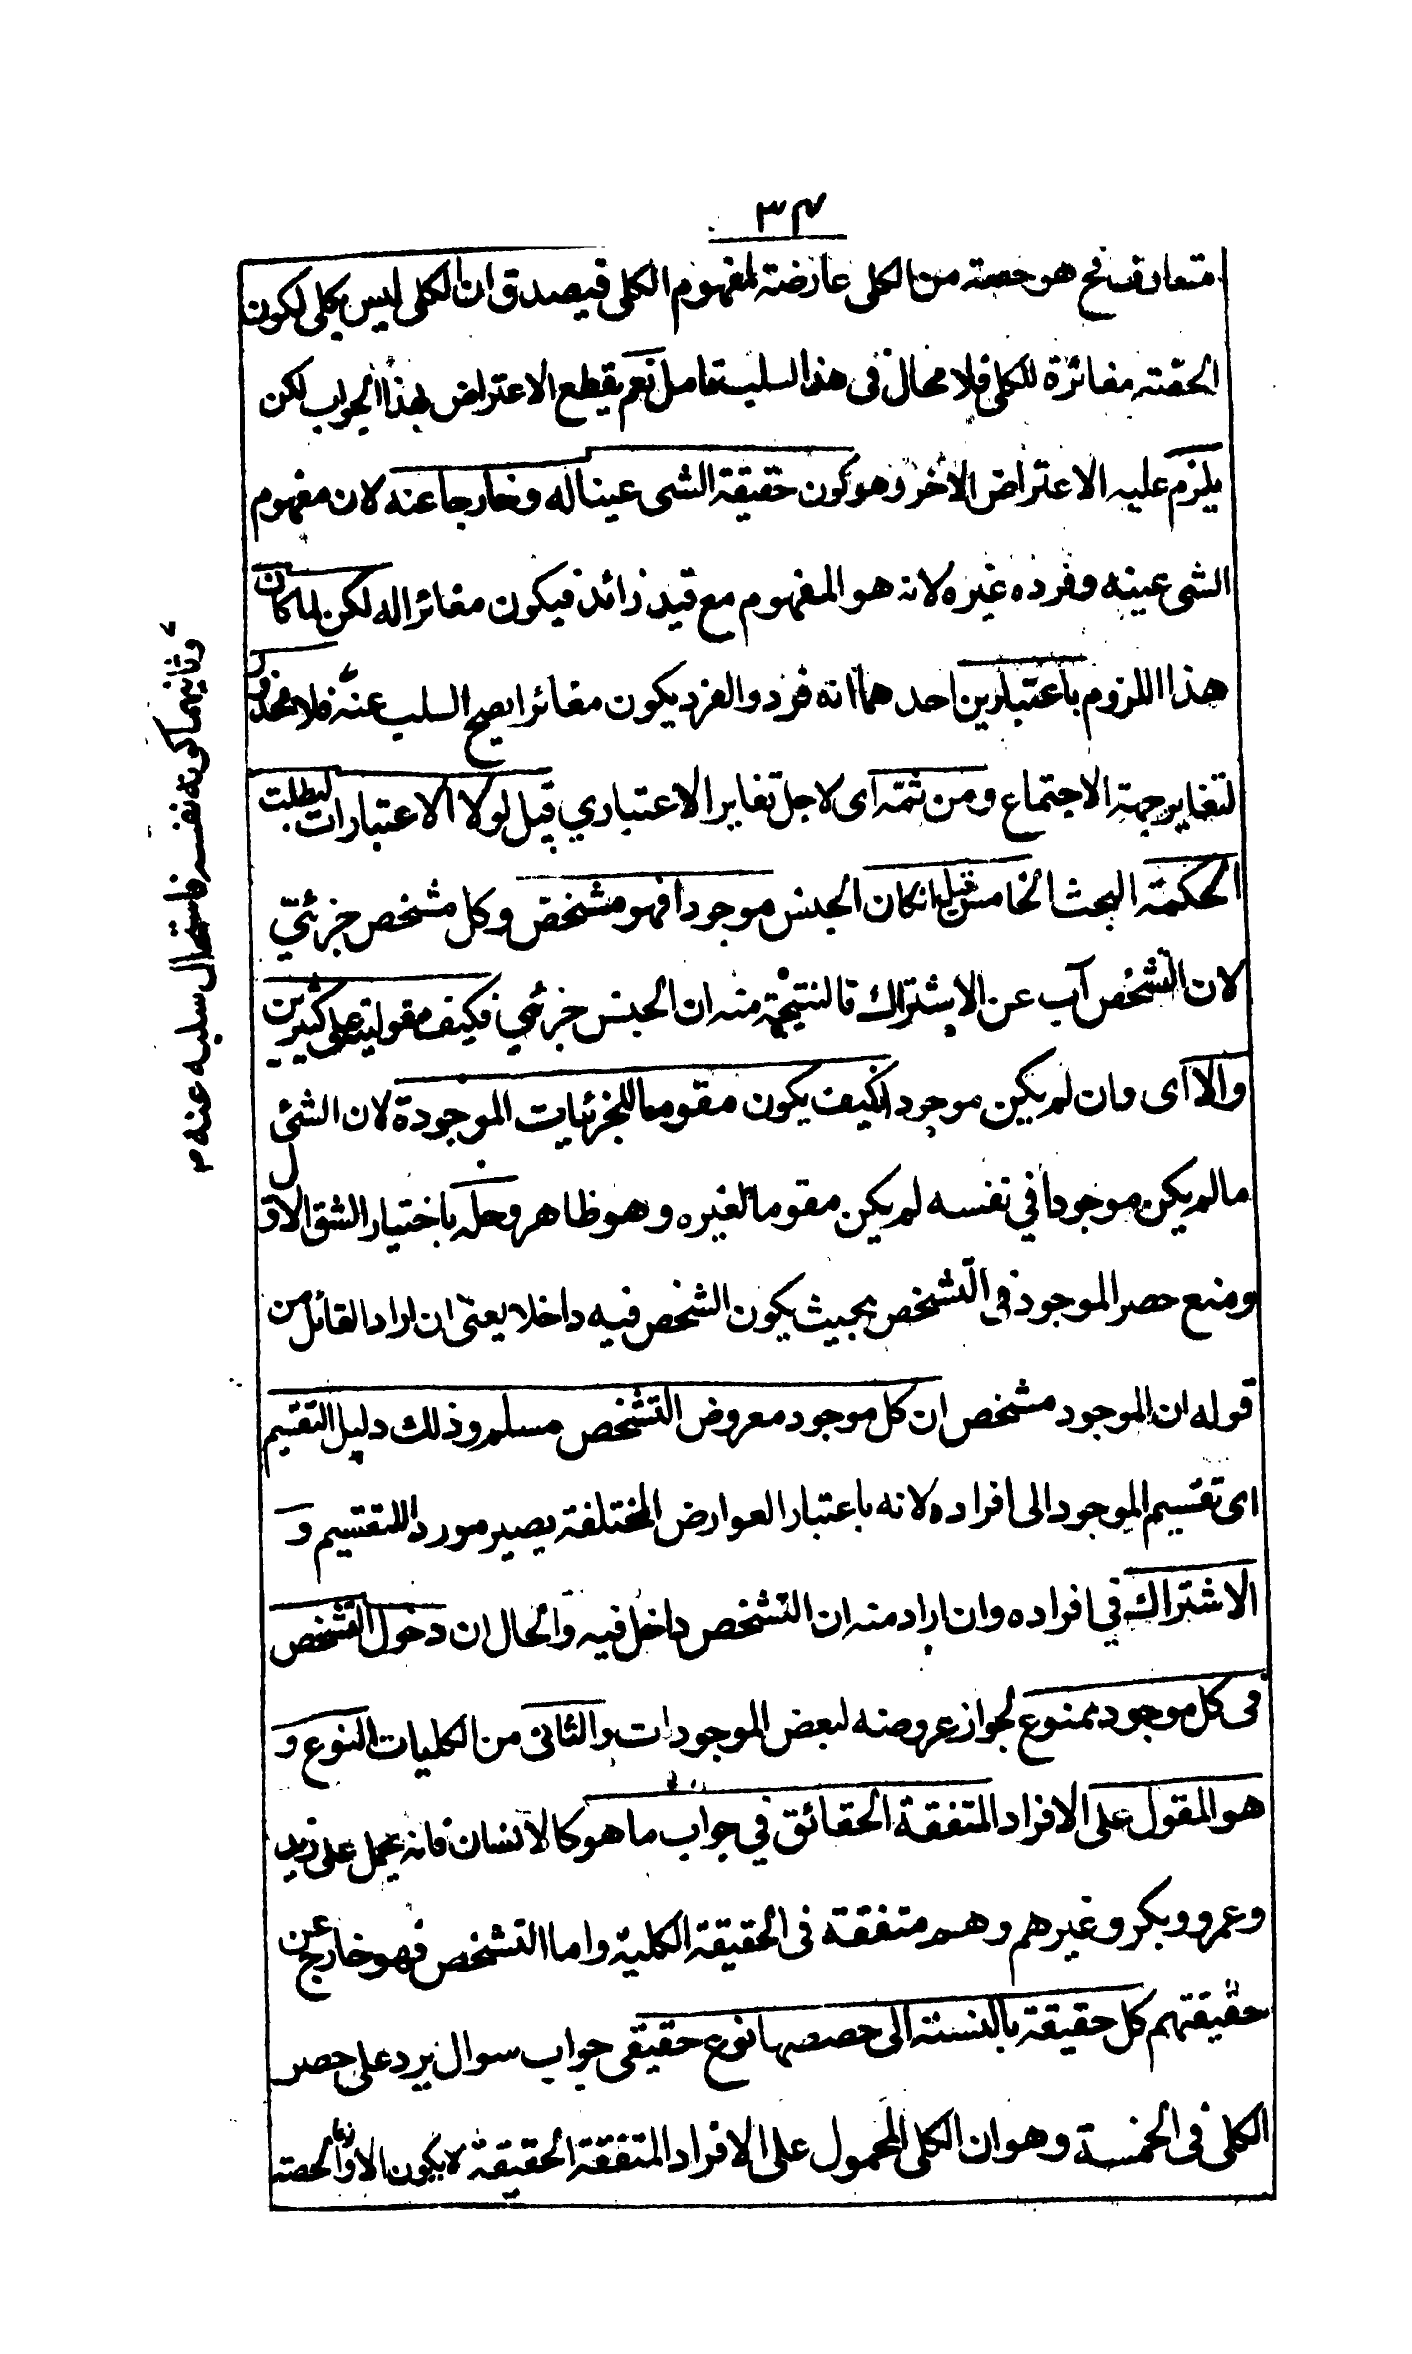 ٣٤
متعارف فح هو حصته من الكلى عارضته لمفهوم الكلى فيصدق ان الكلى ليس بكلى لكون
الحصته مغائرة للكلى فلا محال فى هذا السلب تامل نعم يقطع الاعتراض بهذا الجواب لكن
يلزم عليه الاعتراض الاخر وهو كون حقيقة الشى عينا له وخارجا عنه لان مفهوم
الشى عينه وفرده غيره لانه هو المفهوم مع قيد زائد فيكون مغائرا له لكن لما كان
هذا اللزوم باعتبارين احدهما انه فرد والفرد يكون مغائرا يصح السلب عنه فلا محذور
لتغاير جهة الاجتماع ومن ثمه اى لاجل تغاير الاعتباري قيل لولا الاعتبارات لبطلت
الحكمة البحث الخامس قيل ان كان الجنس موجودا فهو مشخص وكل مشخص جزئي
لان التشخص آب عن الاشتراك فالنتيجة منه ان الجنس جزئي فكيف مقوليته على كثيرين
والا اى وان لم يكن موجودا فكيف يكون مقوما للجزئيات الموجودة لان الشئى
مالم يكن موجودا في نفسه لم يكن مقوما لغيره وهو ظاهر وحله باختيار الشق الاول
ومنع حصر الموجود فى التشخص بحيث يكون الشخص فيه داخلا يعنى ان اراد القائل من
قوله ان الموجود مشخص ان كل موجود معروض التشخص مسلم وذلك دليل التقسيم
اى تقسيم الموجود الى افراده لانه باعتبار العوارض المختلفة يصير موردا للتقسيم و
الاشتراك في افراده وان اراد منه ان التشخص داخل فيه والحال ان دخول التشخص
فى كل موجود ممنوع لجواز عروضه لبعض الموجودات والثانى من الكليات النوع و
هو المقول على الافراد المتفقة الحقائق في جواب ما هو كالانسان فانه يحمل على زيد
وعمرو وبكر وغيرهم وهم متفقة فى الحقيقة الكلية واما التشخص فهو خارج عن
حقيقتهم كل حقيقة بالنسبته الى حصصها نوع حقيقى جواب سوال يرد على حصر
الكلى فى الخمسة وهو ان الكلى المحمول على الافراد المتفقة الحقيقة لا يكون الا والحصته
وثانيهما كونه نفسه فاستحال سلبه عنه م